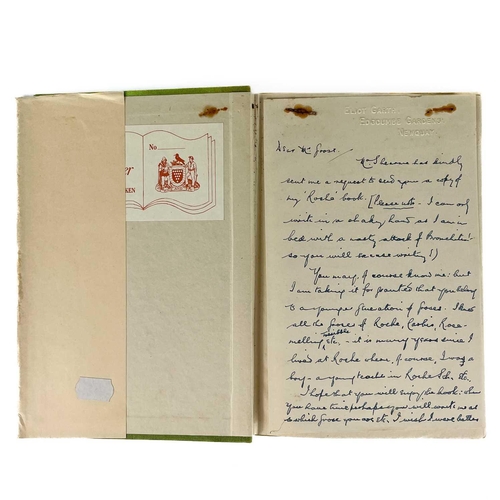 No
er
KEN
EDGCUMBE GARDENS
NEWQUAY
Dear Mr Grose.
Mr Sherone has kindly
sent me a request to send you a copy of
my 'Roche' book. [Please note - I can only
write in a shaky hand as I am in
bed with a nasty attack of Bronchitis!
so you will excuse writing!)
You may, of course know me: but
I am taking it for granted that you belong
to a younger generation of Groses. I knew
all the Groses of Roche, Carbis, Rose-
melling, Trezibble, etc, - it is many years since I
lived at Roche where, of course, I was a
boy - a young teacher in Roche Sch. etc.
I hope that you will enjoy the book: when
you have time perhaps you will write me as
to which Grose you are, etc. I wish I were better